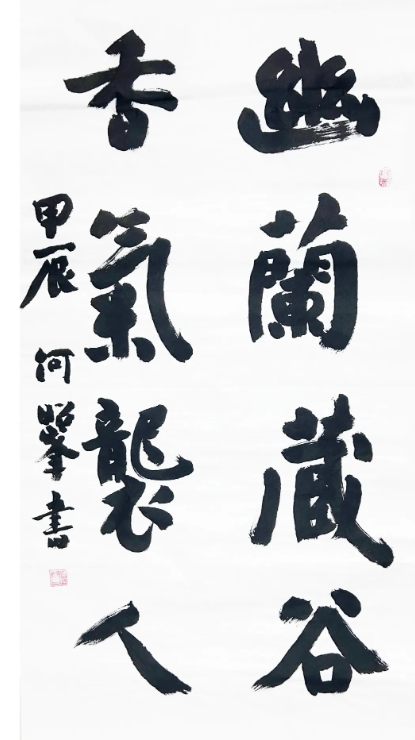 幽蘭藏谷
香氣襲人
甲辰 何昭峯書